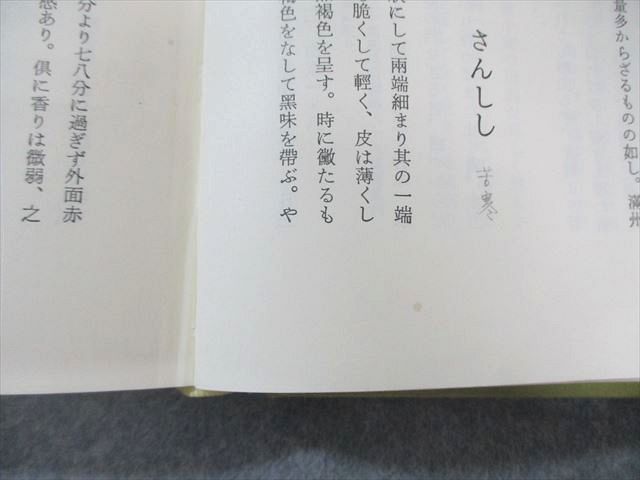 量多からざるものの如し。滿州
さんしし 苦寒
狀にして兩端細まり其の一端
脆くして輕く、皮は薄くし
褐色を呈す。時に黴たるも
褐色をなして黑味を帶ぶ。や
分より七八分に過ぎず外面赤
感あり。俱に香りは微弱、之